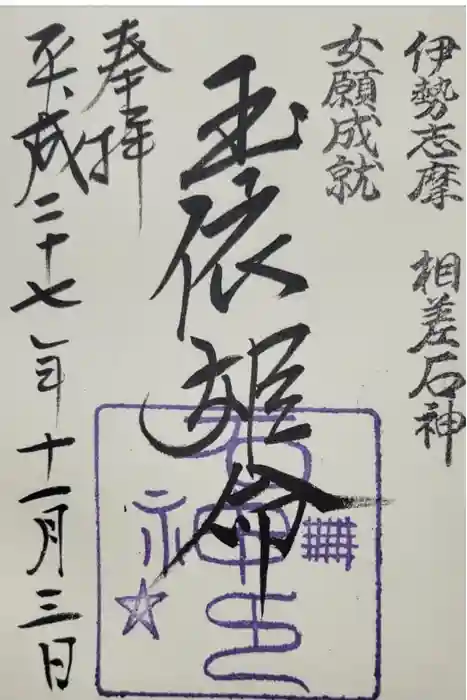 伊勢志摩 相差石神
女願成就
玉依姫命
奉拝
平成二十七年十一月三日
石神之印